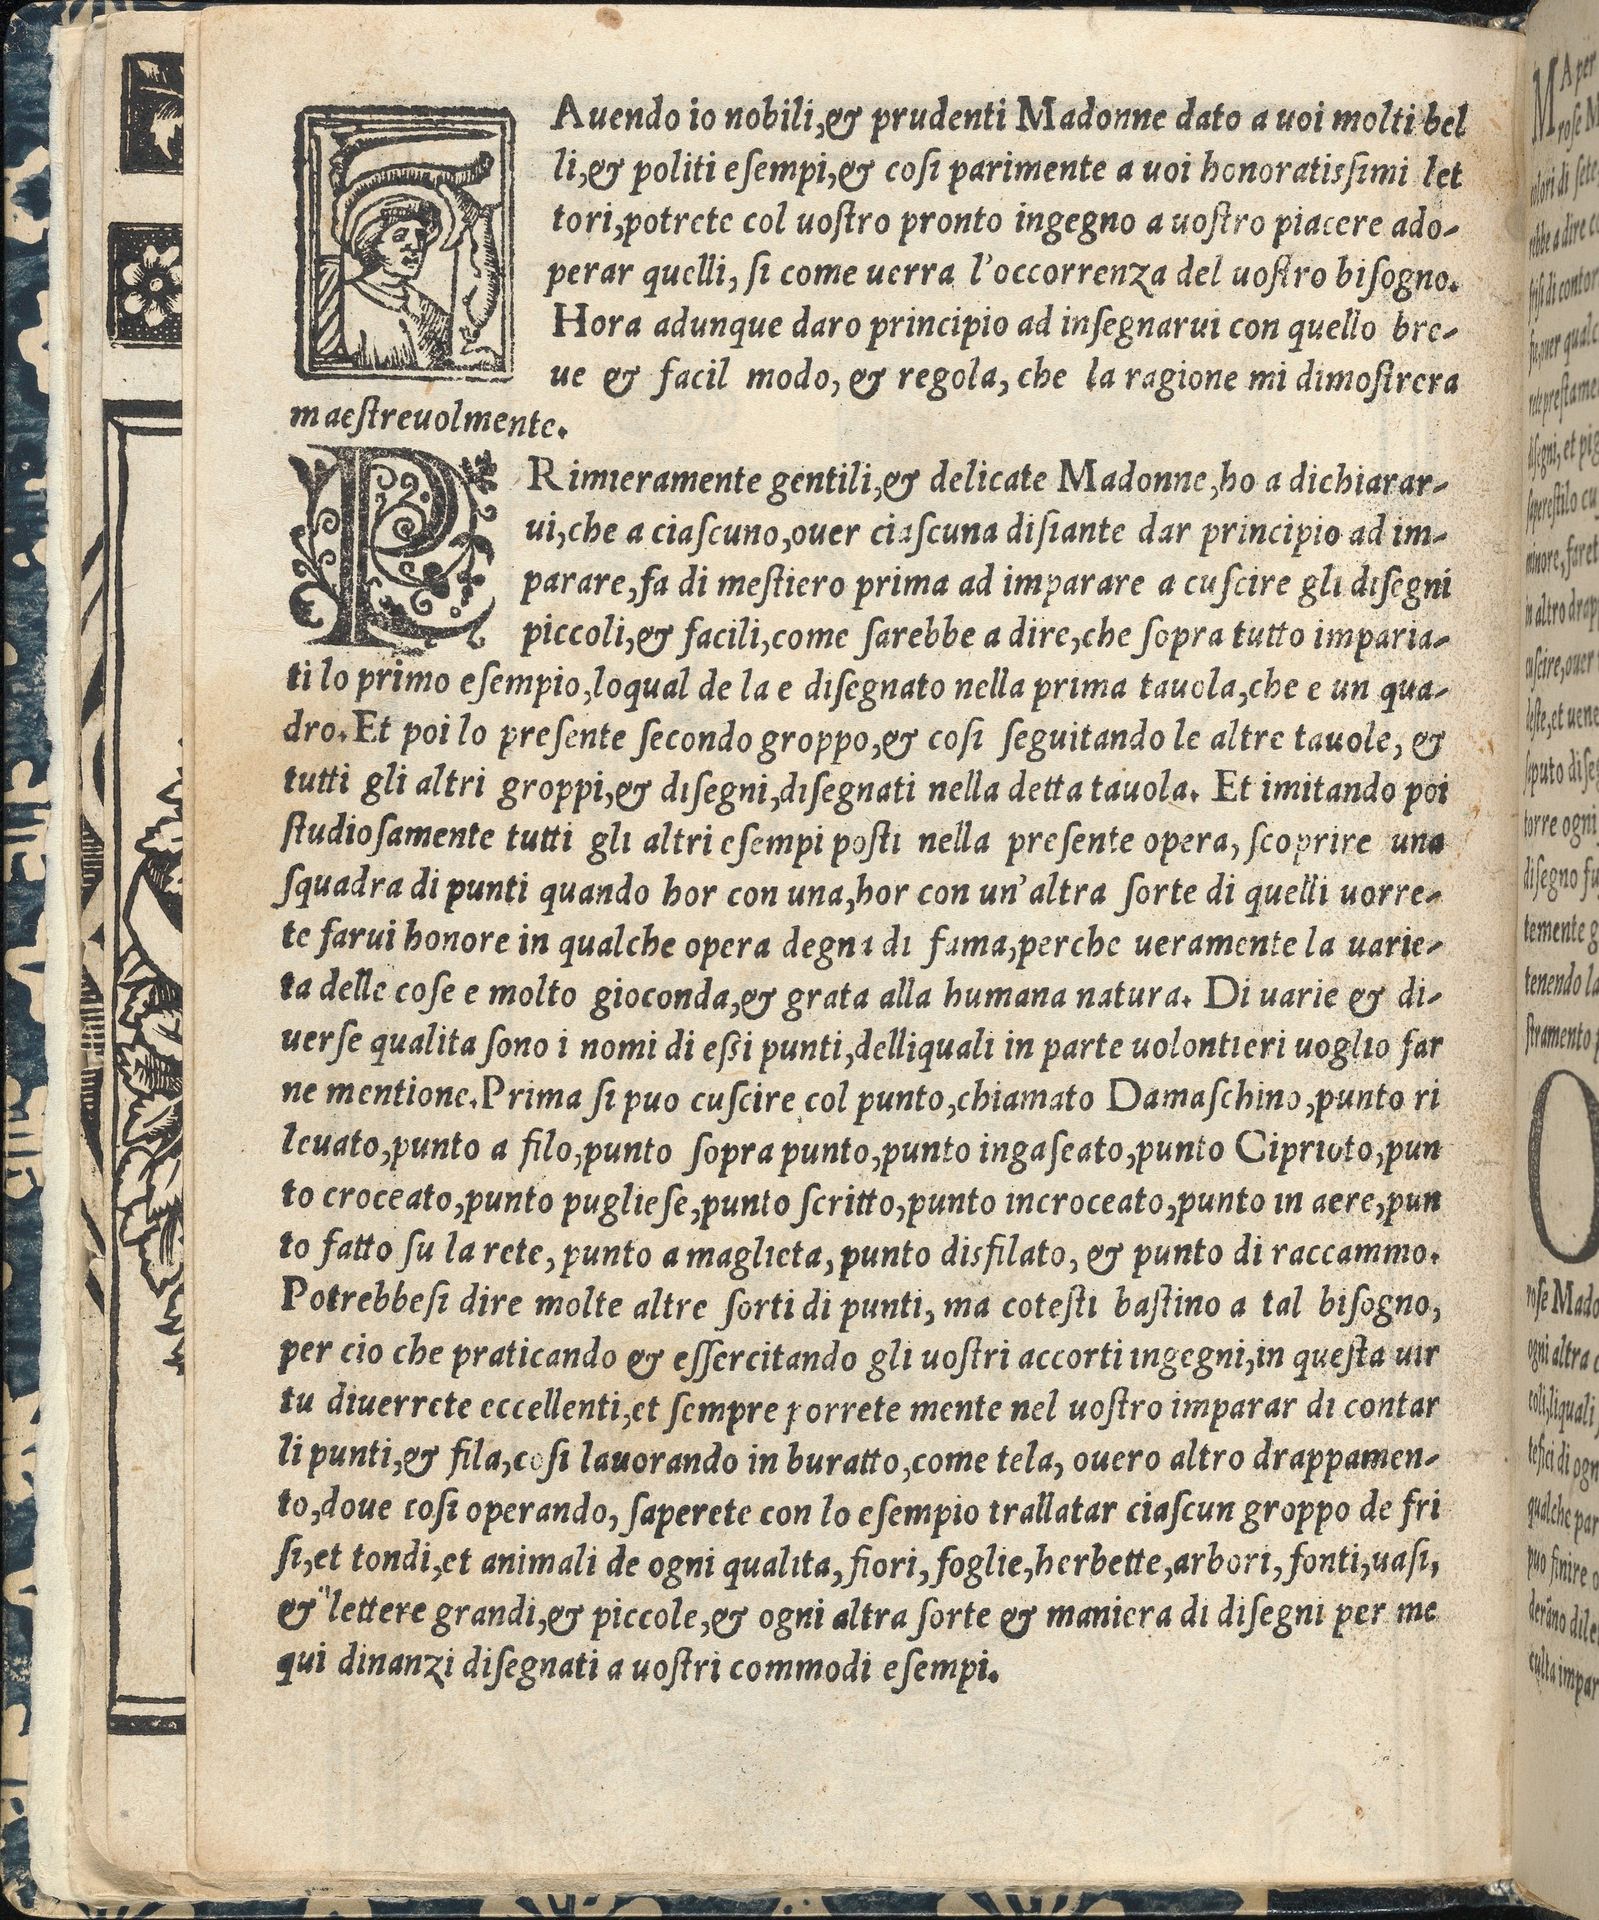 Auendo io nobili,& prudenti Madonne dato a uoi molti bel
li,& politi eſempi,& coſi parimente a uoi honoratisſimi let
tori,potrete col uoſtro pronto ingegno a uoſtro piacere ado-
perar quelli, ſi come uerra l'occorrenza del uoſtro biſogno.
Hora adunque daro principio ad inſegnarui con quello bre-
ue & facil modo, & regola, che la ragione mi dimoſtrera
maeſtreuolmente.
PRimieramente gentili,& delicate Madonne,ho a dichiarar-
ui,che a ciaſcuno,ouer ciaſcuna diſiante dar principio ad im-
parare,fa di meſtiero prima ad imparare a cuſcire gli diſegni
piccoli,& facili,come ſarebbe a dire,che ſopra tutto imparia-
ti lo primo eſempio,loqual de la e diſegnato nella prima tauola,che e un qua-
dro. Et poi lo preſente ſecondo groppo,& coſi ſeguitando le altre tauole, &
tutti gli altri groppi,& diſegni,diſegnati nella detta tauola. Et imitando poi
ſtudioſamente tutti gli altri eſempi poſti nella preſente opera, ſcoprire una
ſquadra di punti quando hor con una,hor con un'altra ſorte di quelli uorre-
te farui honore in qualche opera degna di fama,perche ueramente la uarie-
ta delle coſe e molto gioconda,& grata alla humana natura. Di uarie & di-
uerſe qualita ſono i nomi di eſſi punti,delliquali in parte uolontieri uoglio far
ne mentione.Prima ſi puo cuſcire col punto,chiamato Damaſchino,punto ri
leuato,punto a filo,punto ſopra punto,punto ingaſeato,punto Ciprioto,pun
to croceato,punto puglieſe,punto ſcritto,punto incroceato,punto in aere,pun
to fatto ſu la rete, punto a maglieta, punto disfilato, & punto di raccammo.
Potrebbeſi dire molte altre ſorti di punti, ma coteſti baſtino a tal biſogno,
per cio che praticando & eſſercitando gli uoſtri accorti ingegni,in queſta uir
tu diuerrete eccellenti,et ſempre porrete mente nel uoſtro imparar di contar
li punti,& fila,coſi lauorando in buratto,come tela, ouero altro drappamen-
to,doue coſi operando, ſaperete con lo eſempio trallatar ciaſcun groppo de fri
ſi,et tondi,et animali de ogni qualita, fiori, foglie,herbette,arbori, fonti,uaſi,
& lettere grandi,& piccole,& ogni altra ſorte & maniera di diſegni per me
qui dinanzi diſegnati a uoſtri commodi eſempi.